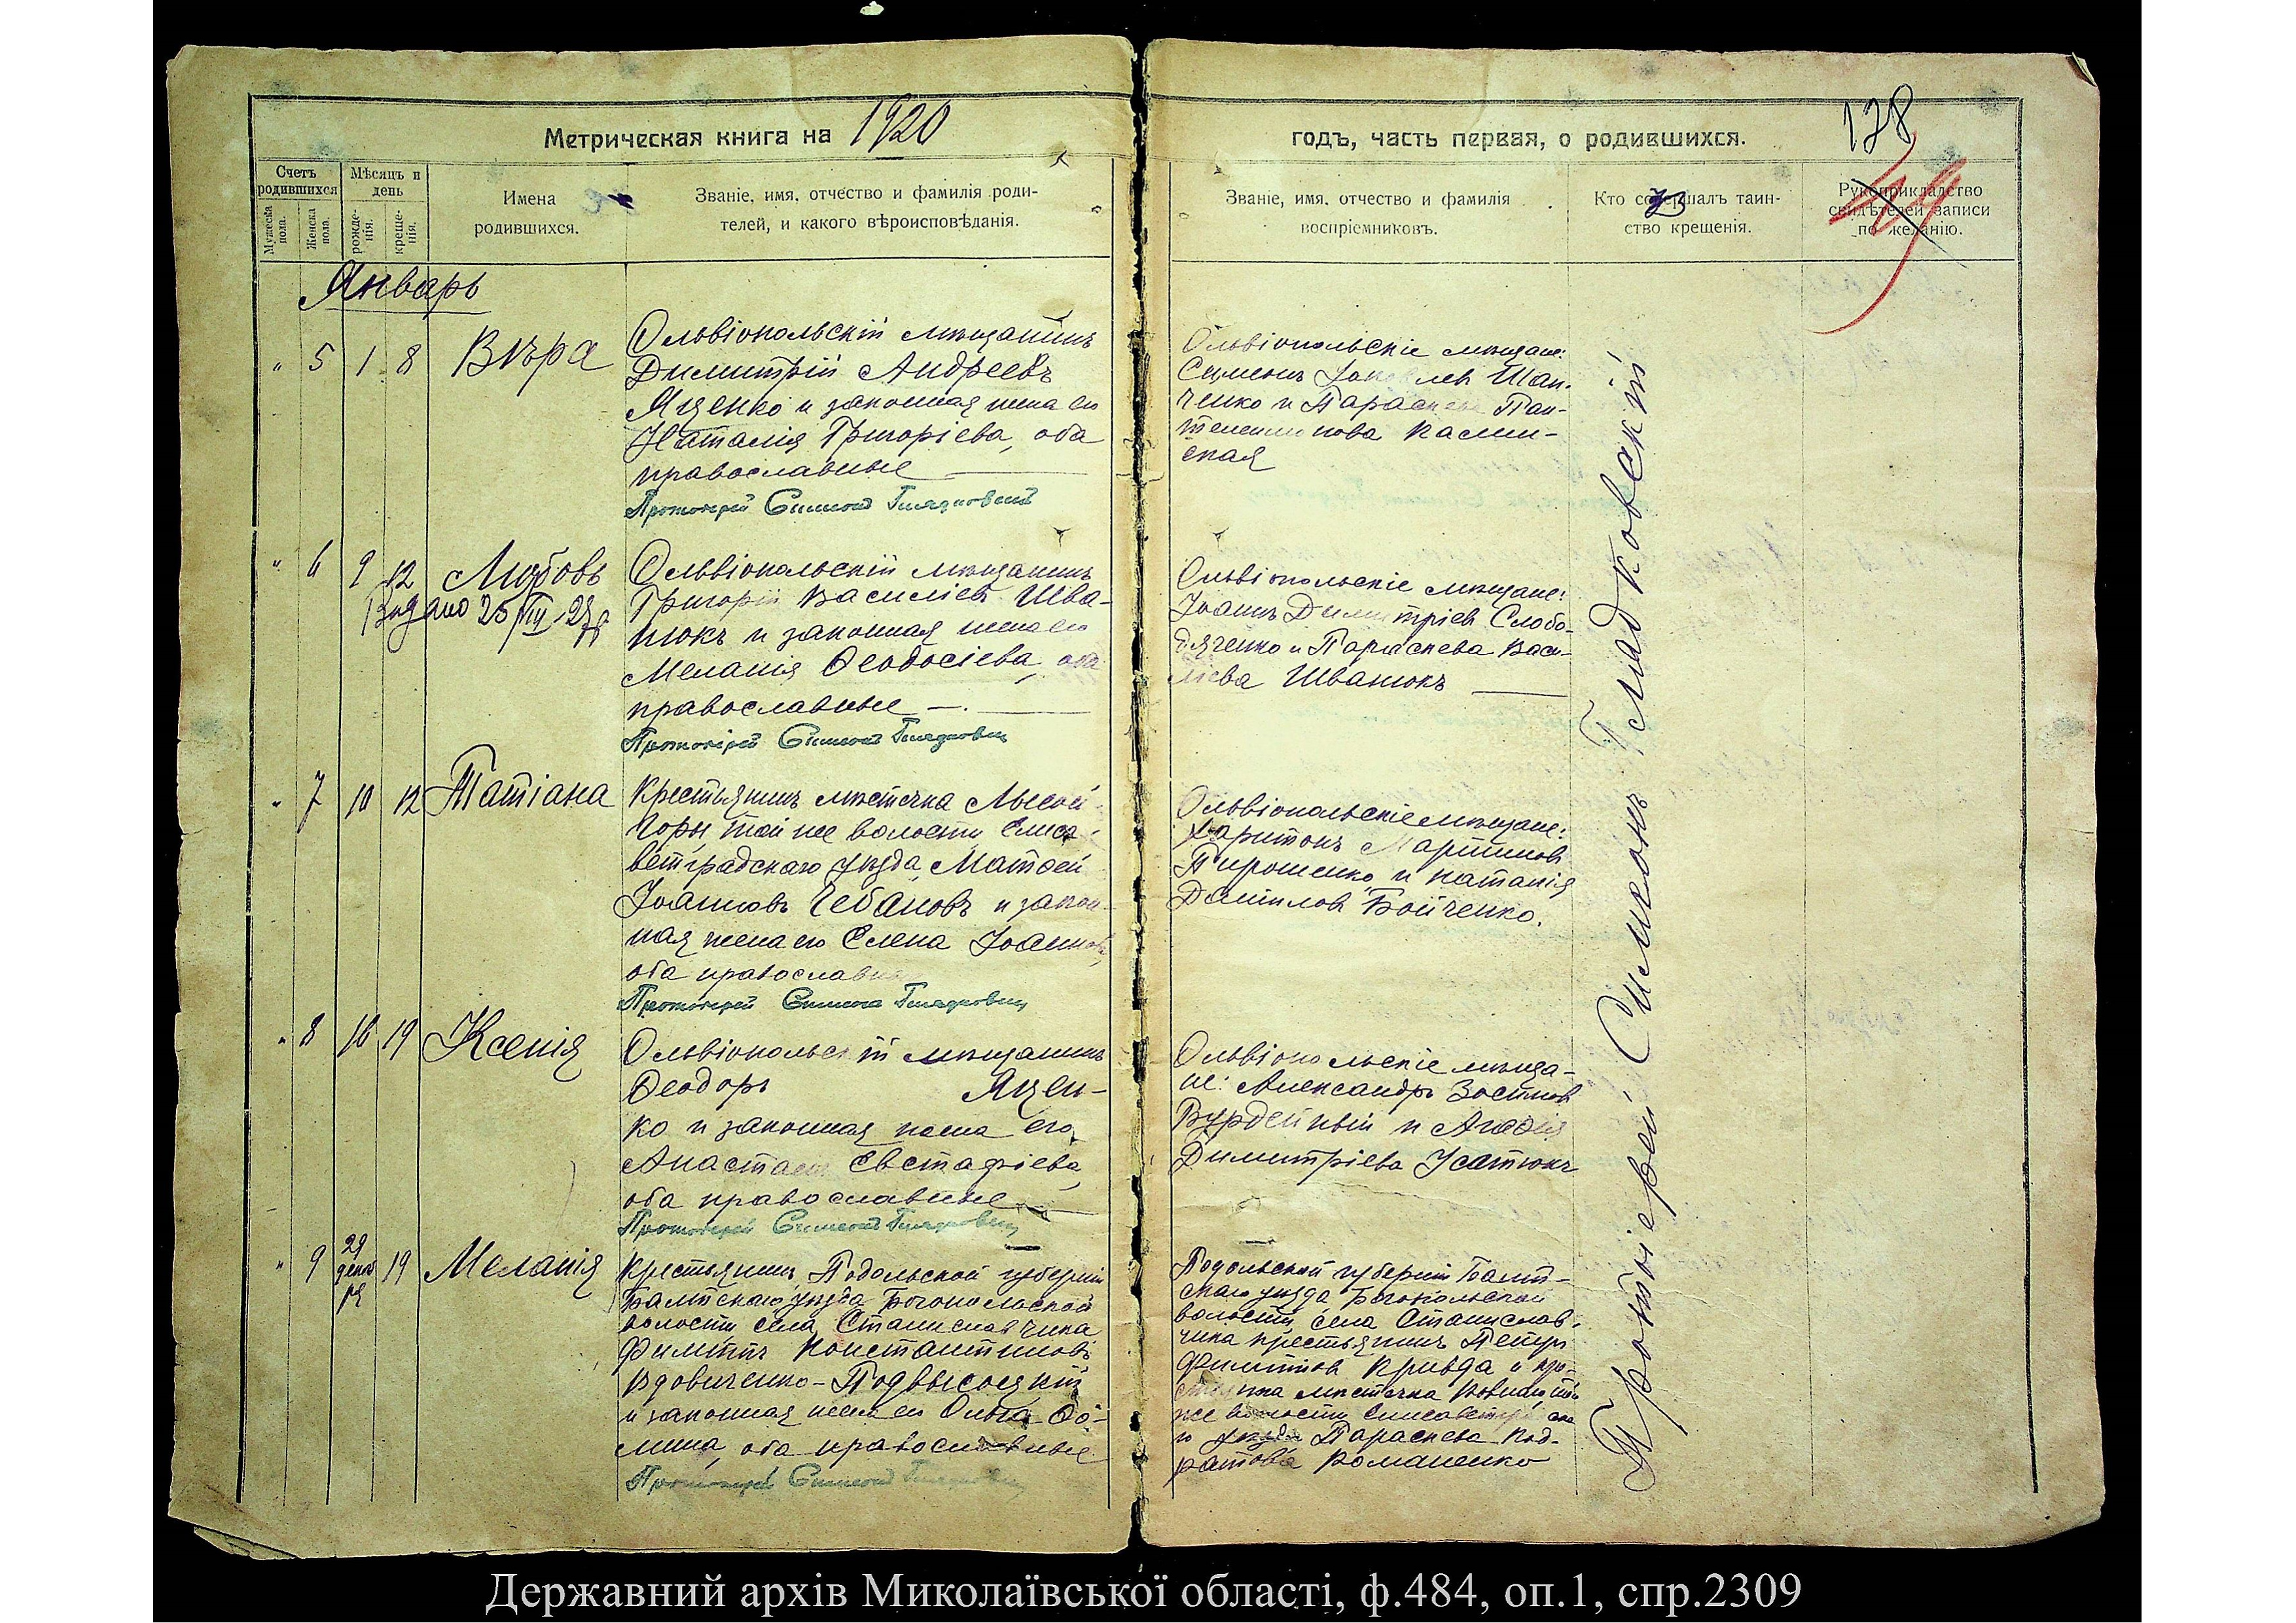 Метрическая книга на 1920
годъ, часть первая, о родившихся.
138
Счетъ родившихся
Мужеска пола.
Женска пола.
Мѣсяцъ и день
рожденія.
крещенія.
Имена родившихся.
Званіе, имя, отчество и фамилія роди-
телей, и какого вѣроисповѣданія.
Званіе, имя, отчество и фамилія
воспріемниковъ.
Кто совершалъ таин-
ство крещенія.
Рукоприкладство
свидѣтелей записи
по желанію.
Январь
" 5 1 8 Вѣра
Ольвіопольскій мѣщанинъ
Димитрій Андреевъ
Яценко и законная жена его
Наталія Григоріева, оба
православные
Протоіерей Симеонъ Гладковскій
Ольвіопольскіе мѣщане:
Симеонъ Яковлевъ Шап-
ченко и Параскева Пан-
телеимонова Касмин-
ская
" 6 9 12 Любовь
Ольвіопольскій мѣщанинъ
Григорій Василіевъ Шва-
нюкъ и законная жена его
Меланія Ѳеодосіева, оба
православные
Протоіерей Симеонъ Гладковскій
Ольвіопольскіе мѣщане:
Іоаннъ Димитріевъ Слобо-
дяченко и Параскева Васи-
ліева Шванюкъ
" 7 10 12 Татіана
Крестьянинъ мѣстечка Лысой
Горы, той же волости Елиса-
ветградскаго уѣзда, Матѳей
Іоанновъ Чебановъ и закон-
ная жена его Елена Іоаннова,
оба православные
Протоіерей Симеонъ Гладковскій
Ольвіопольскіе мѣщане:
Харитонъ Мартиновъ
Пирошенко и Наталія
Данилова Бойченко.
" 8 16 19 Ксенія
Ольвіопольскій мѣщанинъ
Ѳеодоръ Яцен-
ко и законная жена его
Анастасія Евстафіева,
оба православные
Протоіерей Симеонъ Гладковскій
Ольвіопольскіе мѣща-
не: Александръ
и
Димитріева Усатюкъ
" 9 29 декабря 19 Меланія
Крестьянинъ Подольской губерніи
Балтскаго уѣзда Богопольской
волости села Станиславчика
Филиппъ Константиновъ
Вдовиченко-Подвысоцкій
и законная жена его Ольга Ѳо-
мина, оба православные
Протоіерей Симеонъ Гладковскій
Подольской губерніи Балт-
скаго уѣзда Богопольской
волости, села Станислав-
чика крестьянинъ Петръ
Филипповъ Кривда и кре-
стьянка мѣстечка той
же волости Елисаветградска
го уѣзда Параскева Код-
ратова Романенко
Протоіерей Симеонъ Гладковскій
Державний архів Миколаївської області, ф.484, оп.1, спр.2309